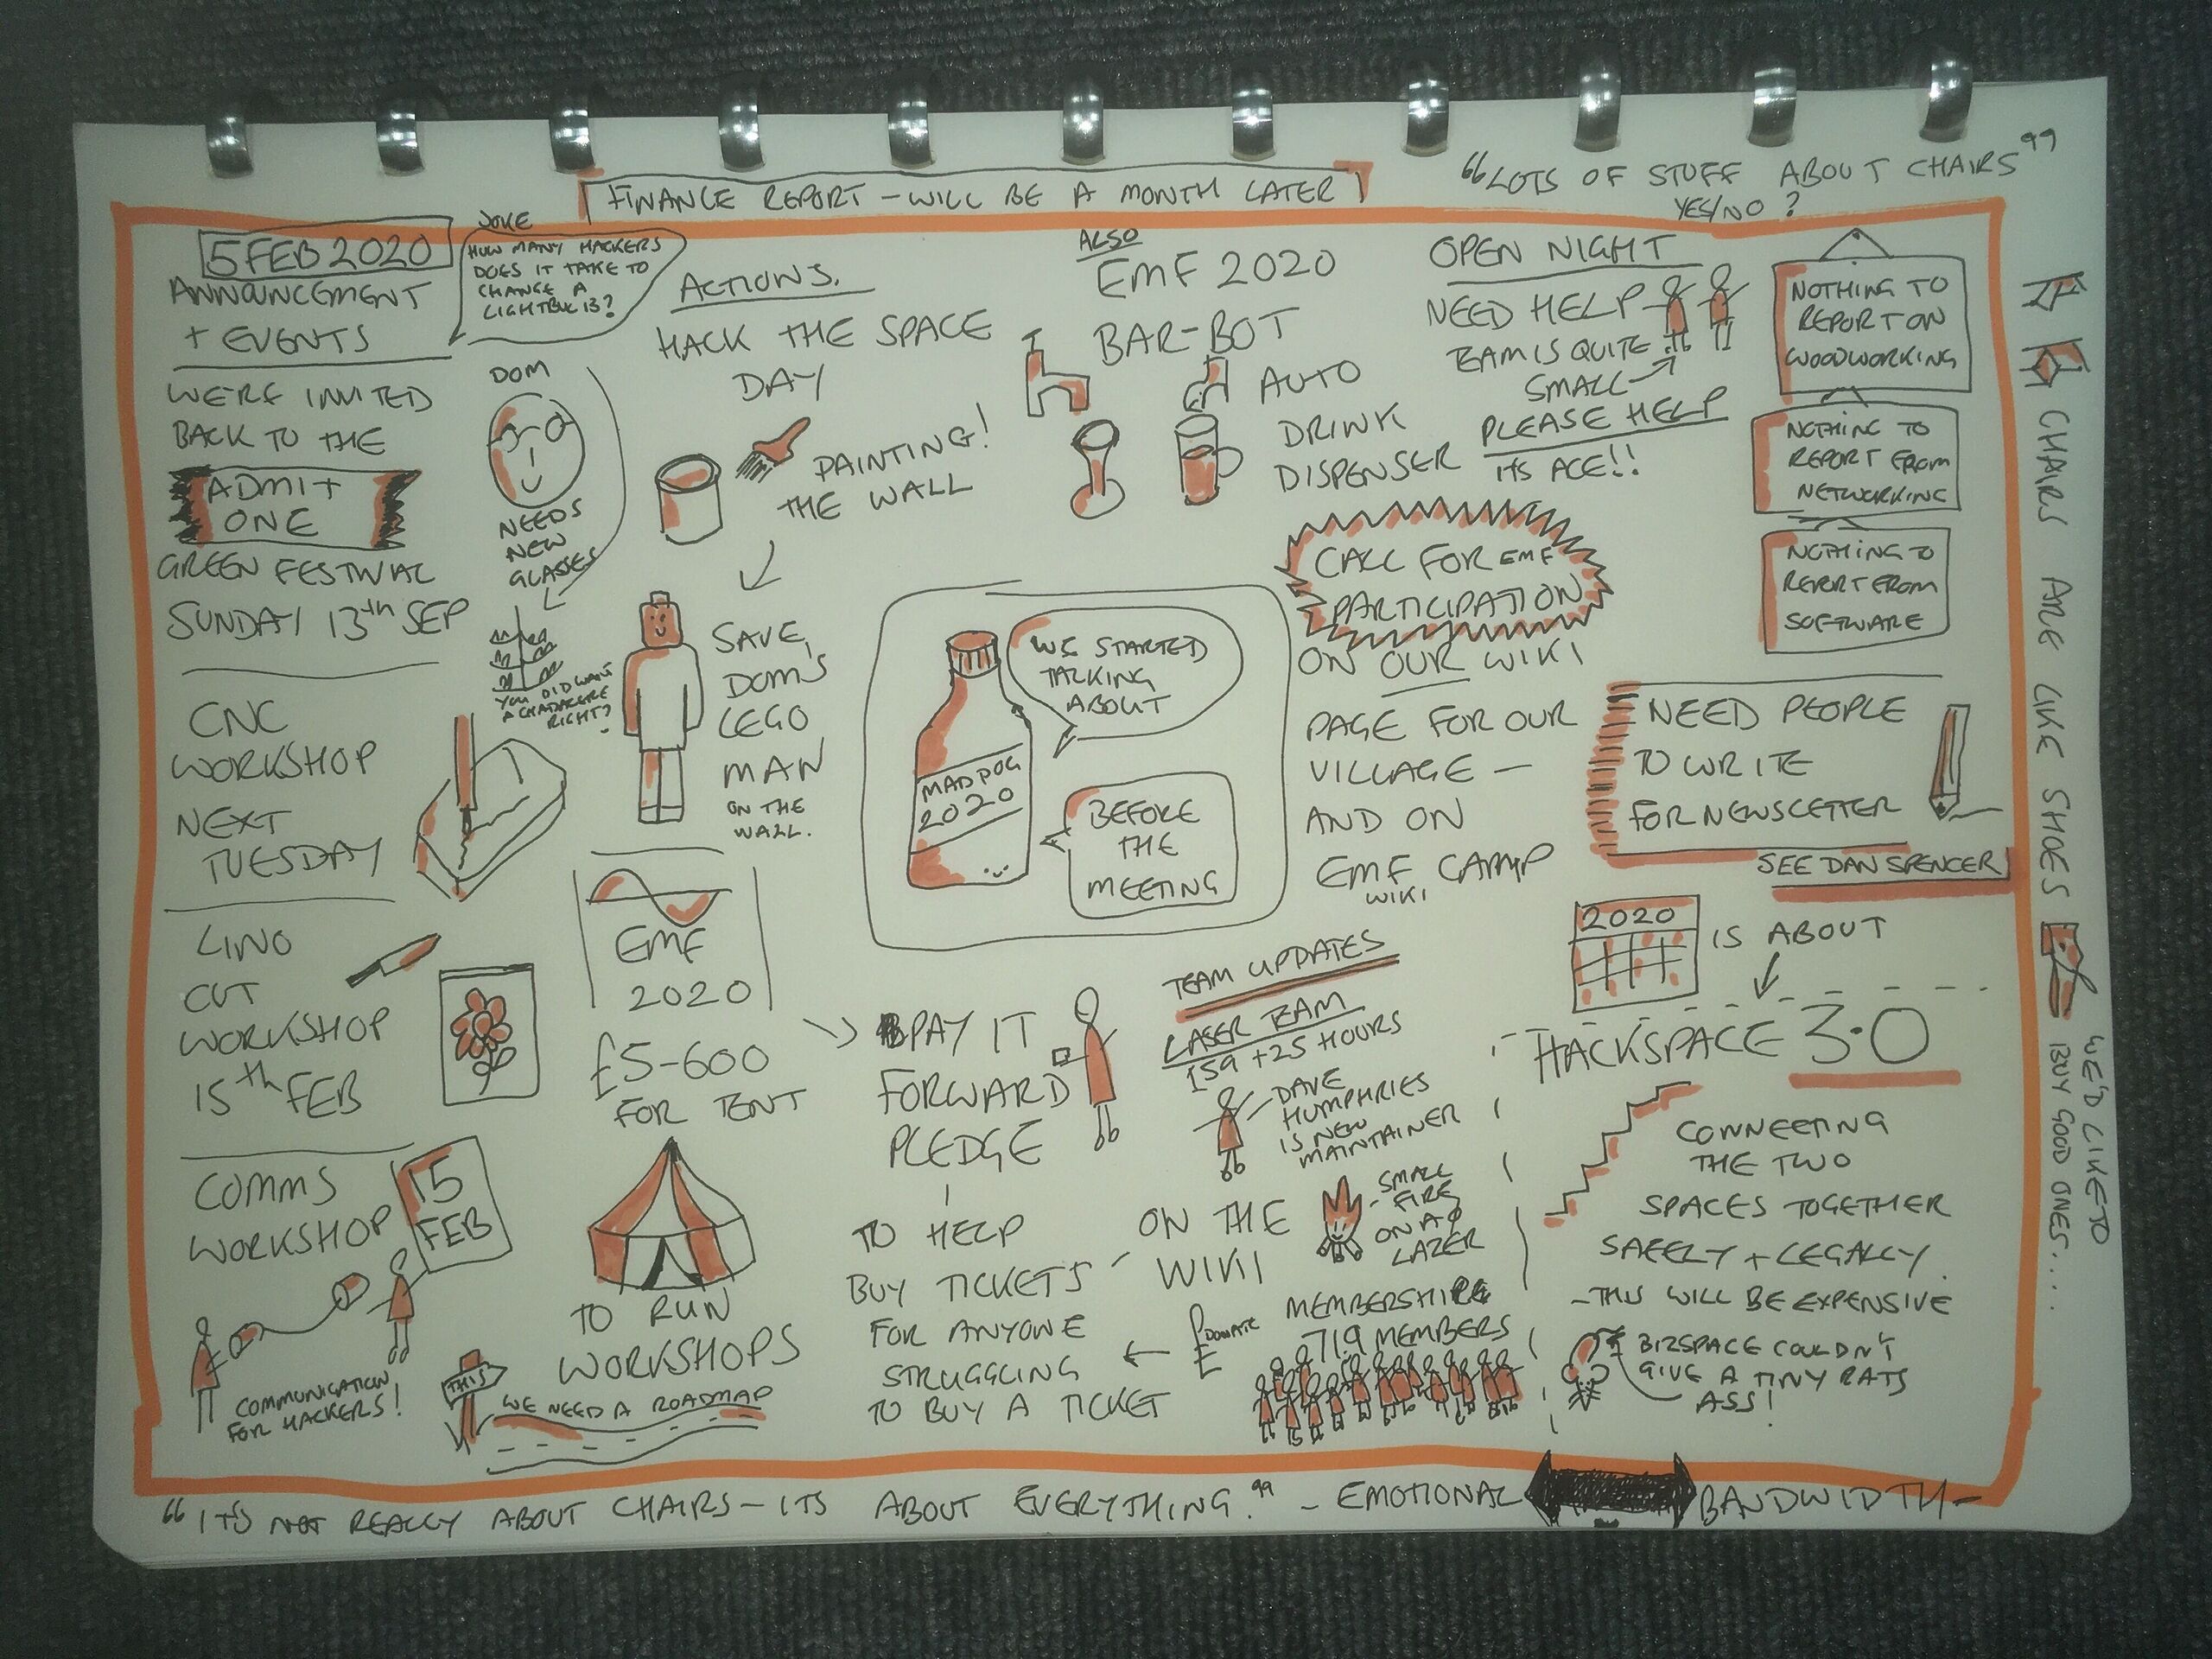 FINANCE REPORT - WILL BE A MONTH LATER
"LOTS OF STUFF ABOUT CHAIRS"
YES/NO?
5 FEB 2020
ANNOUNCEMENT
+ EVENTS
WERE INVITED
BACK TO THE
ADMIT
ONE
GREEN FESTIVAL
SUNDAY 13th SEP
CNC
WORKSHOP
NEXT
TUESDAY
LINO
CUT
WORKSHOP
15th FEB
COMMS
WORKSHOP
15
FEB
COMMUNICATION
FOR HACKERS!
JOKE
HOW MANY HACKERS
DOES IT TAKE TO
CHANGE A
LIGHTBULB?
DOM
NEEDS
NEW
GLASSES
YOU DID WANT
A CHANDALERE
RIGHT?
ACTIONS.
HACK THE SPACE
DAY
PAINTING!
THE WALL
SAVE,
DOM'S
LEGO
MAN
ON THE
WALL.
EMF
2020
£5-600
FOR TENT
TO RUN
WORKSHOPS
THIS
WE NEED A ROADMAP
ALSO
EMF 2020
BAR-BOT
AUTO
DRINK
DISPENSER
WE STARTED
TALKING
ABOUT
MADPOG
2020
BEFORE
THE
MEETING
PAY IT
FORWARD
PLEDGE
TO HELP
BUY TICKETS
FOR ANYONE
STRUGGLING
TO BUY A TICKET
ON THE
WIKI
DONATE
£
OPEN NIGHT
NEED HELP
TEAM IS QUITE
SMALL
PLEASE HELP
ITS ACE!!
CALL FOR EMF
PARTICIPATION
ON OUR WIKI
PAGE FOR OUR
VILLAGE -
AND ON
EMF CAMP
WIKI
TEAM UPDATES
LASER TEAM
159 + 25 HOURS
DAVE
HUMPHRIES
IS NEW
MAINTAINER
SMALL
FIRE
ON A0
LAZER
MEMBERSHIP
719 MEMBERS
NOTHING TO
REPORT ON
WOODWORKING
NOTHING TO
REPORT FROM
NETWORKING
NOTHING TO
REPORT FROM
SOFTWARE
NEED PEOPLE
TO WRITE
FOR NEWSLETTER
SEE DAN SPENCER
2020
IS ABOUT
HACKSPACE 3.0
CONNECTING
THE TWO
SPACES TOGETHER
SAFELY + LEGALLY.
- THIS WILL BE EXPENSIVE
BIZSPACE COULDN'T
GIVE A TINY RATS
ASS!
CHAIRS ARE LIKE SHOES
WE'D LIKE TO
BUY GOOD ONES....
"ITS NOT REALLY ABOUT CHAIRS - ITS ABOUT EVERYTHING." - EMOTIONAL BANDWIDTH -